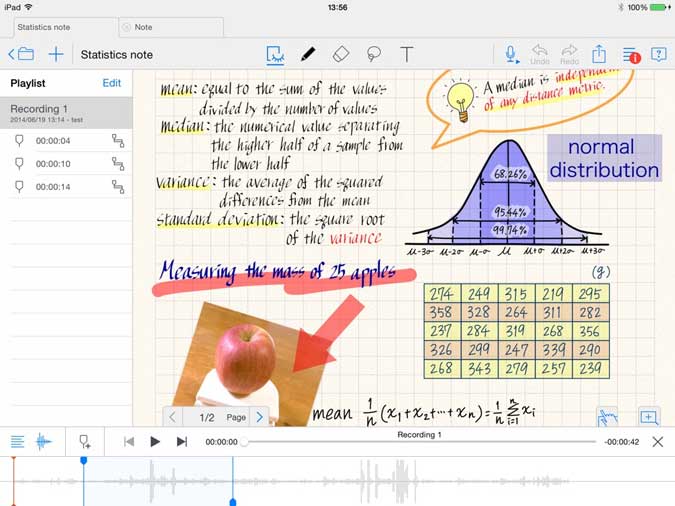 iPad
13:56
100%
Statistics note
Note
Statistics note
T
Undo
Redo
1
Playlist
Edit
Recording 1
2014/06/19 13:14 - test
00:00:04
00:00:10
00:00:14
mean: equal to the sum of the values
divided by the number of values
median: the numerical value separating
the higher half of a sample from
the lower half
variance: the average of the squared
differences from the mean
standard deviation: the square root
of the variance
A median is independent
of any distance metric.
normal
distribution
68.26%
95.44%
99.74%
μ-3σ μ-2σ μ-σ μ μ+σ μ+2σ μ+3σ
Measuring the mass of 25 apples
(g)
274 249 315 219 295
358 328 264 311 282
237 284 319 268 356
326 299 247 339 290
268 343 279 257 239
1/2 Page
mean 1/n (x₁+x₂+···+xₙ)=1/n Σⁿᵢ₌₁ xᵢ
Recording 1
00:00:00
-00:00:42